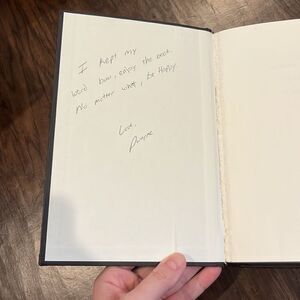 I kept my
word bum, enjoy the book.
No matter what, be Happy.
Love,
Dwayne